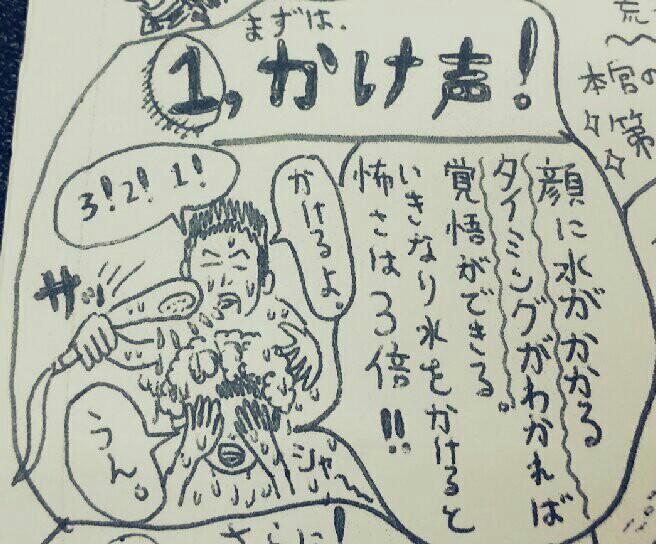 まずは、
1、かけ声！
顔に水がかかる
タイミングがわかれば
覚悟ができる。
いきなり水をかけると
怖さは3倍!!
かけるよ。
3！2！1！
サッ
うん。
シャ〜
さらに！
荒
本宮の
☆第☆